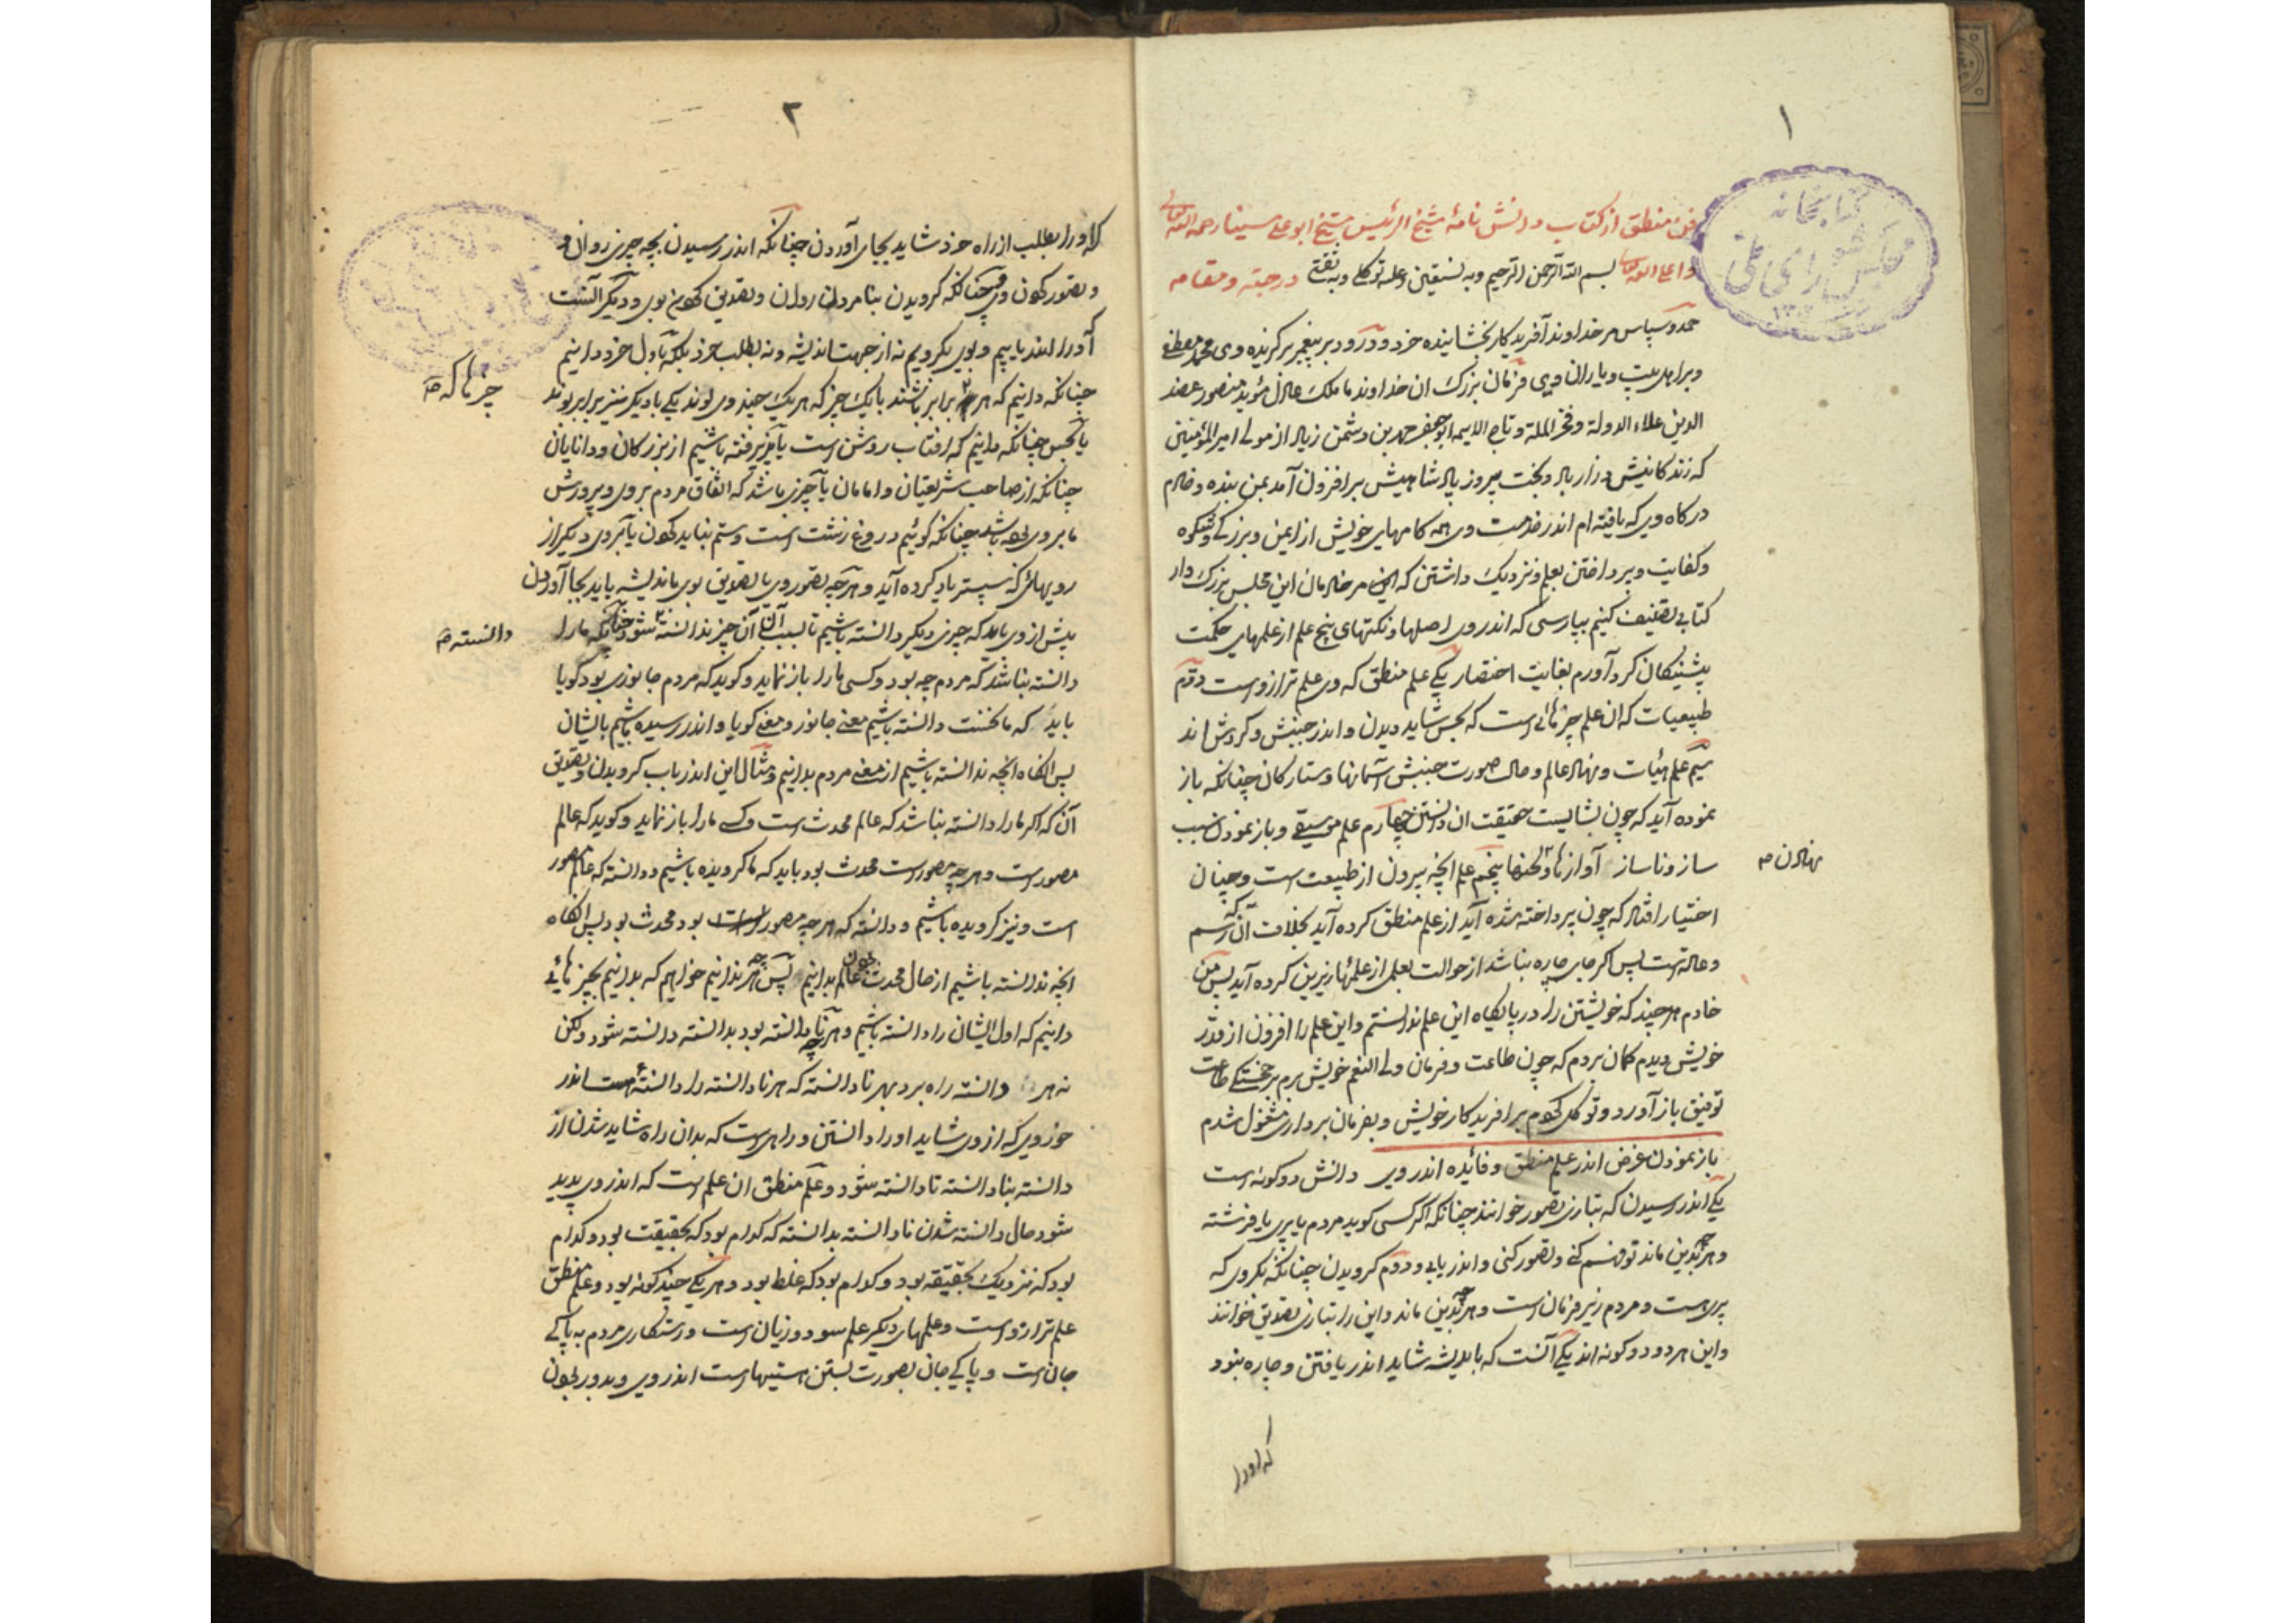 ۱
فن منطق از کتاب دانش نامهٔ شیخ الرئیس شیخ ابو علی سینا رحمه الله
و اعلی الله بسم الله الرحمن الرحیم وبه نستعین وعلیه توکلی وبه ثقتی درجته و مقامه
کتابخانه
مجلس شورای ملی
حمد و سپاس مر خداوند آفریدکار بخشاینده خرد و درود بر پیغمبر برکزیده وی محمد مصطفی
و بر اهل بیت و یاران وی فرمان بزرك ان خداوند ما ملك عادل مؤید منصور عضد
الدین علاء الدولة و فخر الملة و تاج الامه ابو جعفر محمد بن دشمن زیاد از مولی امیر المؤمنین
که زندکانیش دراز باد و بخت پیروز پادشاهیش بر افزون آمد بمن بنده و خادم
درکاه وی که یافته ام اندر خدمت وی همه کامهای خویش از ایمن و بزرکی و شکوه
و کفایت و پرداختن بعلم و نزدیك داشتن که مر خادمان این مجلس بزرك را
کتابی تصنیف کنیم بپارسی که اندر وی اصلها و نکتهای پنج علم از علمهای حکمت
پیشینکان کرد آورم بغایت اختصار یکی علم منطق که وی علم ترازو است دوّم
طبیعیات که ان علم چیزهائی است که بحس شاید دیدن و اندر جنبش و کردش اند
سیم علم هیئات و نهاد عالم و حال صورت جنبش آسمانها و ستارکان چنانکه باز
نموده آید که چون بشایست حقیقت ان دانستن چهارم علم موسیقی و باز نمودن سبب
ساز و ناساز آوازها و لحنها پنجم علم انچه بیرون از طبیعت است و چنان
نهادن
اختیار افتاد که چون پرداخته شده آید از علم منطق کرده آید بخلاف آن که رسم
و عادت است پس اکر جای چاره نباشد از حوالت بعلمی از علمهای زیرین کرده آید پس من
خادم هر چند که خویشتن را در پایکاه این علم ندانستم و این علم را افزون از قدر
خویش دیدم کمان بردم که چون طاعت و فرمان ولی النعم خویش برم بر خجستکی طاعت
توفیق باز آورد و توکل کردم بر افریدکار خویش و بفرمان برداری مشغول شدم
باز نمودن غرض اندر علم منطق و فائده اندر وی دانش دو کونه است
یکی اندر رسیدن که بتازی تصور خوانند چنانکه اکر کسی کوید مردم یا پری یا فرشته
و هر چه بدین ماند تو فهم کنی و تصور کنی و اندر یابی و دوم کرویدن چنانکه بکروی که
پری هست و مردم زیر فرمان است و هر چه بدین ماند و این را بتازی تصدیق خوانند
و این هر دو دو کونه اند یکی آنست که باندیشه شاید اندر یافتن و چاره نبود
که اورا
۲
که اورا بطلب از راه خرد شاید بجای آوردن چنانکه اندر رسیدن بچه چیزی روان
و تصور کردن وی چنانکه کرویدن بنا مردن روان و تصدیق کردن بوی و دیکر آنست
آورا اندر یابیم و بوی بکرویم نه از جهت اندیشه و نه بطلب خرد بلکه باول خرد دانیم
چنانکه دانیم که هر برابر باشند با یك چیز که هر یك چند وی بوند یکی با دیکر نیز برابر بوند
چیزها که
یا بحس چنانکه دانیم که افتاب روشن است یا پذیرفته باشیم از بزرکان و دانایان
چنانکه از صاحب شریعتیان و امامان یا چیزی باشد که اتفاق مردم بر وی و پرورش
ما بر وی بوده باشد چنانکه کوئیم دروغ زشتست و ستم نباید کردن یا بروی دیکر از
رویهائی که سپستر یاد کرده آید و هر چه تصور وی یا تصدیق بوی باندیشه باید بجا آوردن
پیش از وی باید که چیزی دیکر دانسته باشیم تا بسبب آن آن چیز ندانسته شود چنانکه مارا
دانسته
دانسته نباشد که مردم چه بود و کسی مارا باز نماید و کوید که مردم جانوری بود کویا
باید که ما نخست دانسته باشیم معنی جانور و معنی کویا و اندر رسیده باشیم بایشان
پس انکاه انچه ندانسته باشیم از معنی مردم بدانیم و مثال این اندر باب کرویدن و تصدیق
آن که اکر مارا دانسته نباشد که عالم محدث است و کسی مارا باز نماید و کوید که عالم
مصور است و هر چه مصور است محدث بود باید که ما کرویده باشیم و دانسته که عالم مصور
است و نیز کرویده باشیم و دانسته که هر چه مصور بود محدث بود پس انکاه
انچه ندانسته باشیم از حال محدث عالم بدانیم پس هر چه ندانیم خواهیم که بدانیم بچیزهائی
دانیم که اول ایشان را دانسته باشیم و هر چه نادانسته بود بدانسته دانسته شود ولکن
نه هر دانسته راه برد بهر نادانسته که هر نادانسته را دانسته هست اندر
خور وی که از وی شاید اورا دانستن و راهی است که بدان راه شاید شدن از
دانسته بنادانسته تا دانسته شود و علم منطق ان علم است که اندر وی پدید
شود حال دانسته شدن نادانسته بدانسته که کدام بود که بحقیقت بود و کدام
بود که نزدیك بحقیقه بود و کدام بود که غلط بود و هر یکی چند کونه بود و علم منطق
علم ترازو است و علمهای دیکر علم سود و زیان است و رستکاری مردم به پاکی
جان است و پاکی جان بصورت بستن هستیها است اندر وی و بدور بودن